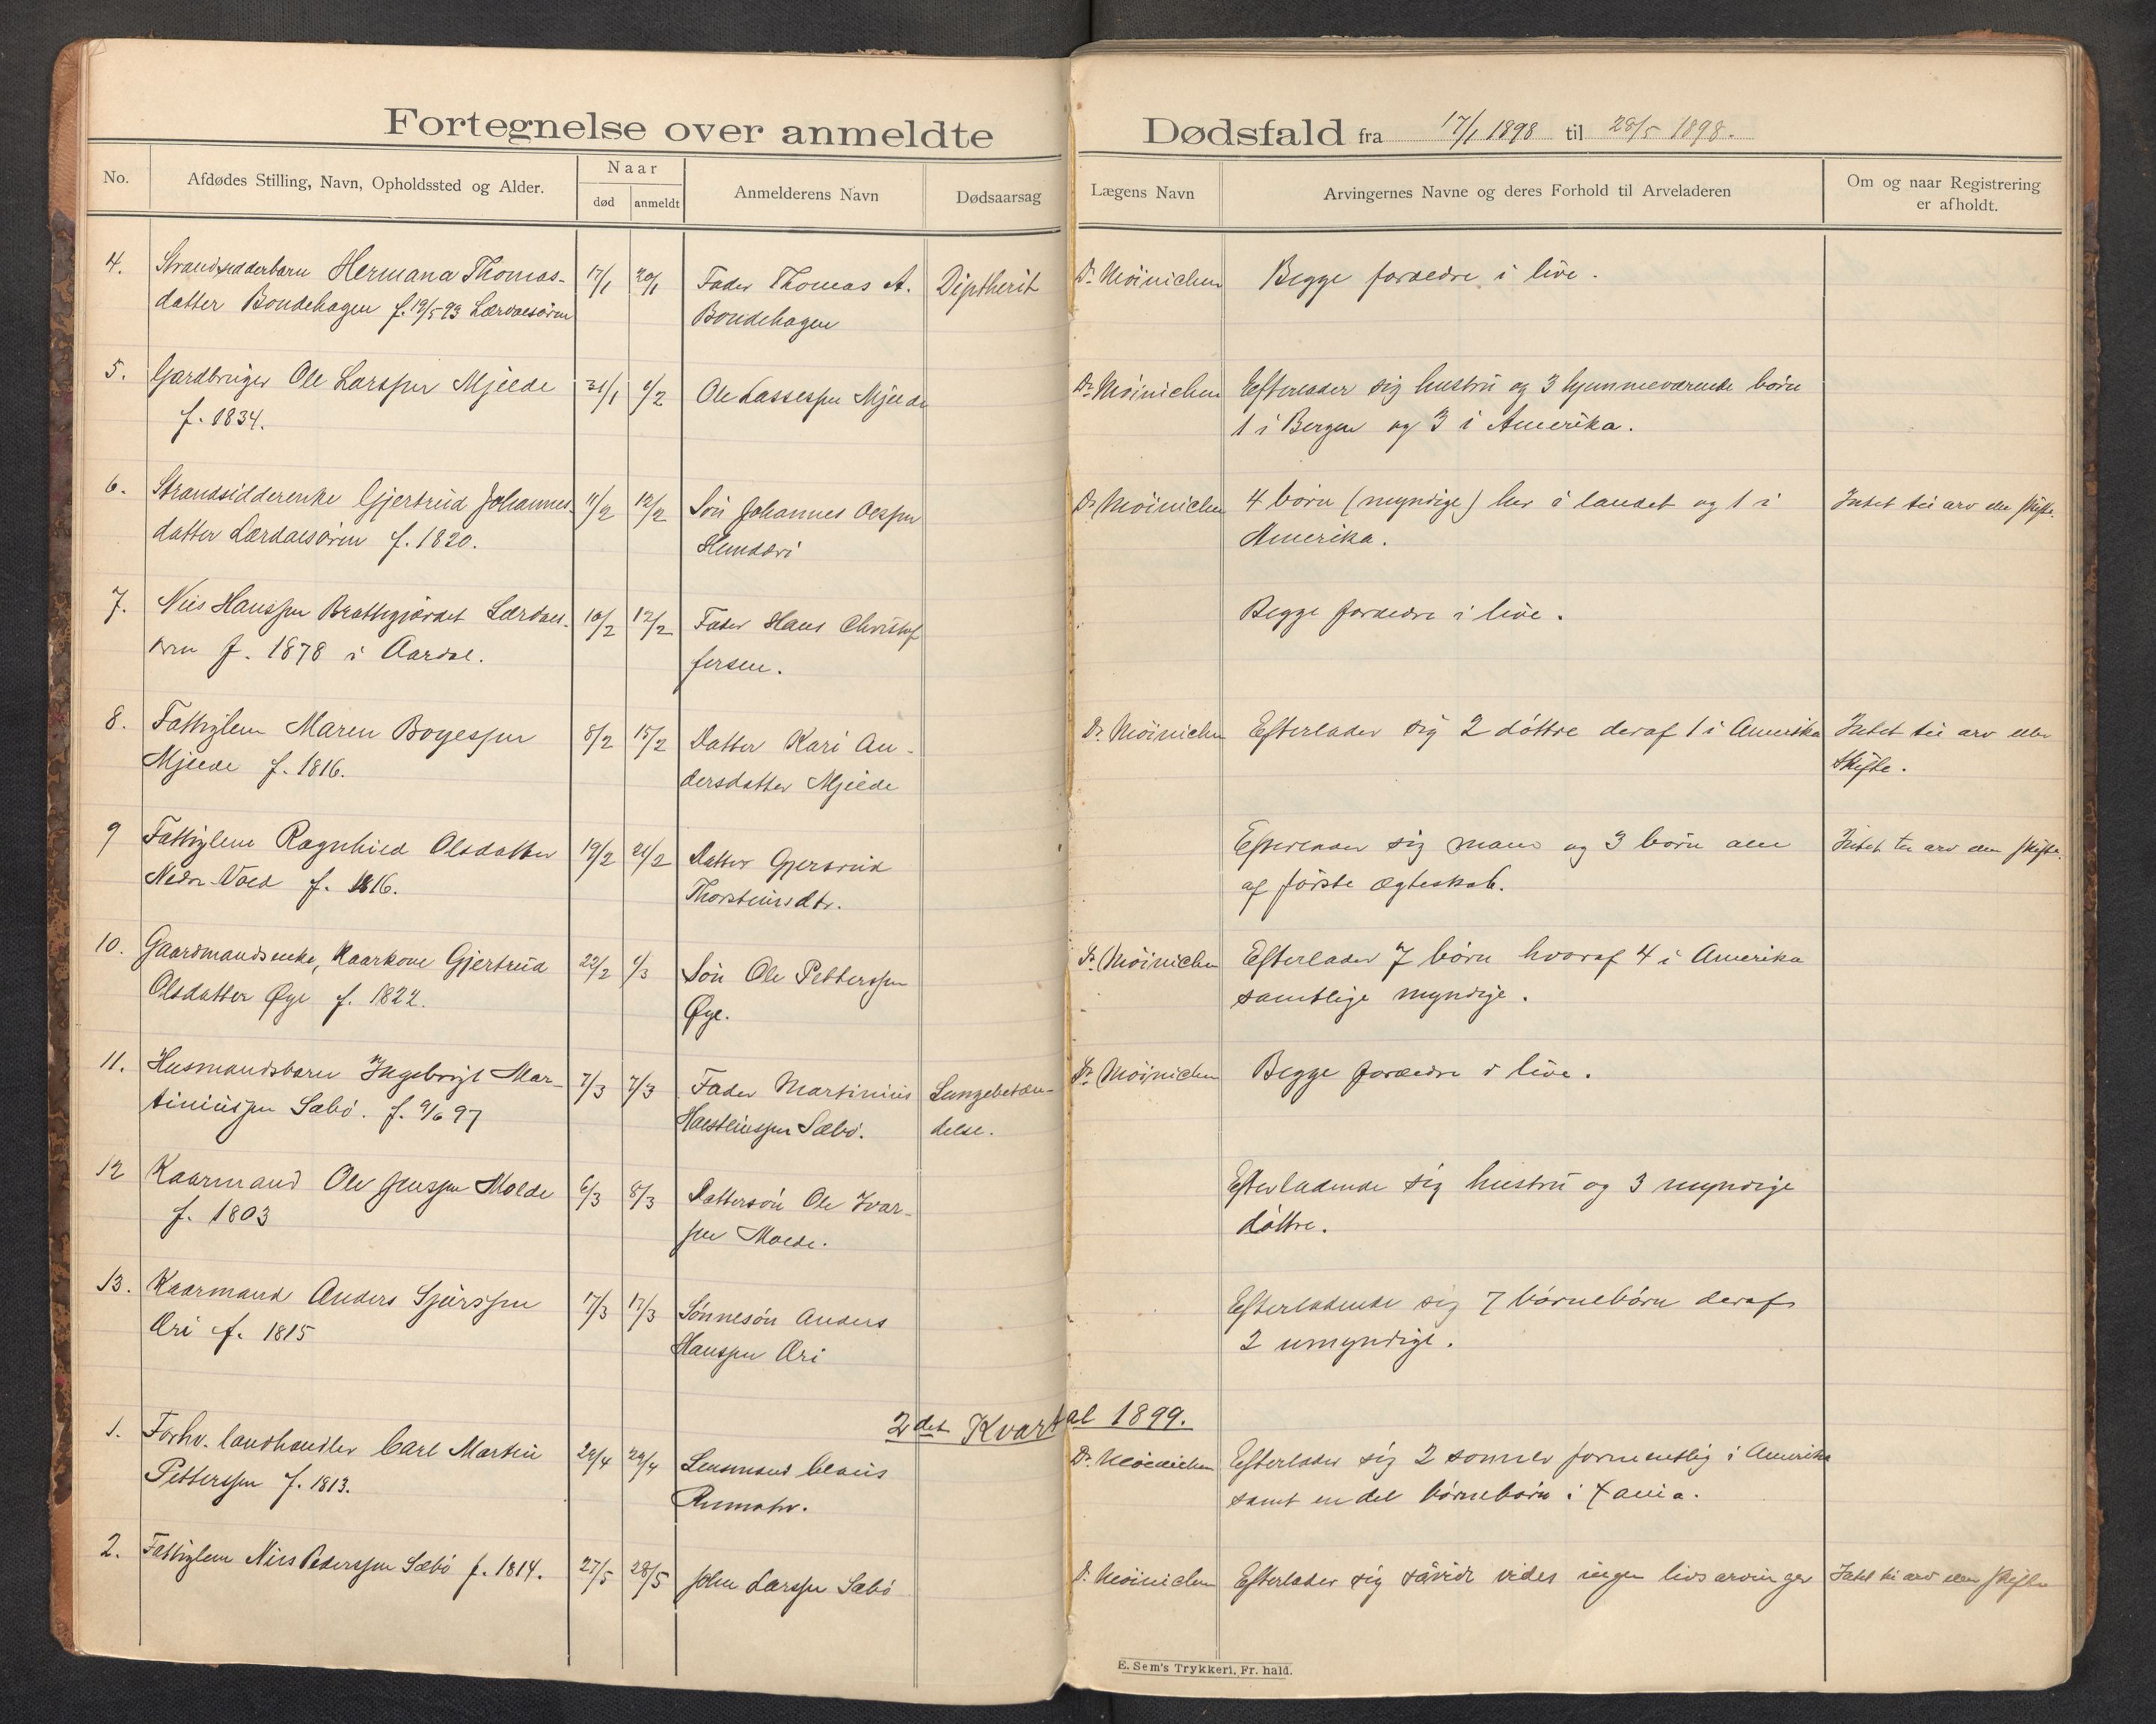 Fortegnelse over anmeldte Dødsfald fra 17/1 1898 til 28/5 1898.
No. Afdødes Stilling, Navn, Opholdssted og Alder. Naar død anmeldt Anmelderens Navn Dødsaarsag Lægens Navn Arvingernes Navne og deres Forhold til Arveladeren Om og naar Registrering er afholdt.
4. Strandsidderbarn Hermana Thomas- 17/1 20/1 Fader Thomas A. Diptherit Dr Möinichen Begge forældre i live.
datter Bondehagen f. 19/5 93 Lærdalsören Bondehagen
5. Gardbruger Ole Larssen Mjelde 31/1 1/2 Ole Lassessen Mjelde Dr Möinichen Efterlader sig hustru og 3 hjemmeværende börn
f. 1834. 1 i Bergen og 3 i Amerika.
6. Strandsidderenke Gjertrud Johannes- 11/2 12/2 Sön Johannes Olssen Dr Möinichen 4 börn (myndige) her i landet og 1 i Intet til arv eller skifte.
datter Lærdalsören f. 1820. Amerika.
7. Nils Hanssen Brattegjerdet Lærdals- 10/2 12/2 Fader Hans Christof Begge forældre i live.
ören f. 1878 i Aardal. fersen.
8. Fattiglem Maren Boyessen 8/2 15/2 Datter Kari An- Dr. Möinichen Efterlader sig 2 döttre deraf 1 i Amerika Intet til arv eller
Mjelde f. 1816. dersdatter Mjelde skifte.
9 Fattiglem Ragnhild Olsdatter 19/2 21/2 Datter Gjertrud Efterlader sig mand og 3 börn alle Intet til arv eller skifte.
Nedre Vold f. 1816. Thorsteinsdtr. af förste ægteskab.
10. Gaardmandsenke, Kaarkone Gjertrud 22/2 1/3 Sön Ole Petterssen Dr. Möinichen Efterlader 7 börn hvoraf 4 i Amerika
Olsdatter Øye f. 1822. Øye. samtlige myndige.
11. Husmandsbarn Ingebrigt Mar- 7/3 7/3 Fader Martinius Lungebetæn- Dr. Möinichen Begge forældre i live.
tiniussen Sæbö. f. 9/6 97 Sæbö. delse.
12 Kaarmand Ole Jenssen Molde 6/3 8/3 Dattersön Ole Ivar- Efterladende sig hustru og 3 myndige
f. 1803 sen Molde. döttre.
13. Kaarmand Anders Sjurssen 17/3 17/3 Sönnesön Anders Efterladende sig 7 börnebörn deraf
Øri f. 1815 Hanssen Øri 2 umyndige.
2det Kvartal 1899.
1. Forhv. landhandler Carl Martin 24/4 24/4 Lensmand Claus Dr. Möinichen Efterlader sig 2 sønner formentlig i Amerika
Petterssen f. 1813. samt en del börnebörn i Xania.
2. Fattiglem Nils Pederssen Sæbö f. 1814. 27/5 28/5 John Larssen Sæbö Dr. Möinichen Efterlader sig såvidt vides ingen livsarvinger Intet til arv eller skifte
E. Sem's Trykkeri, Fr. hald.